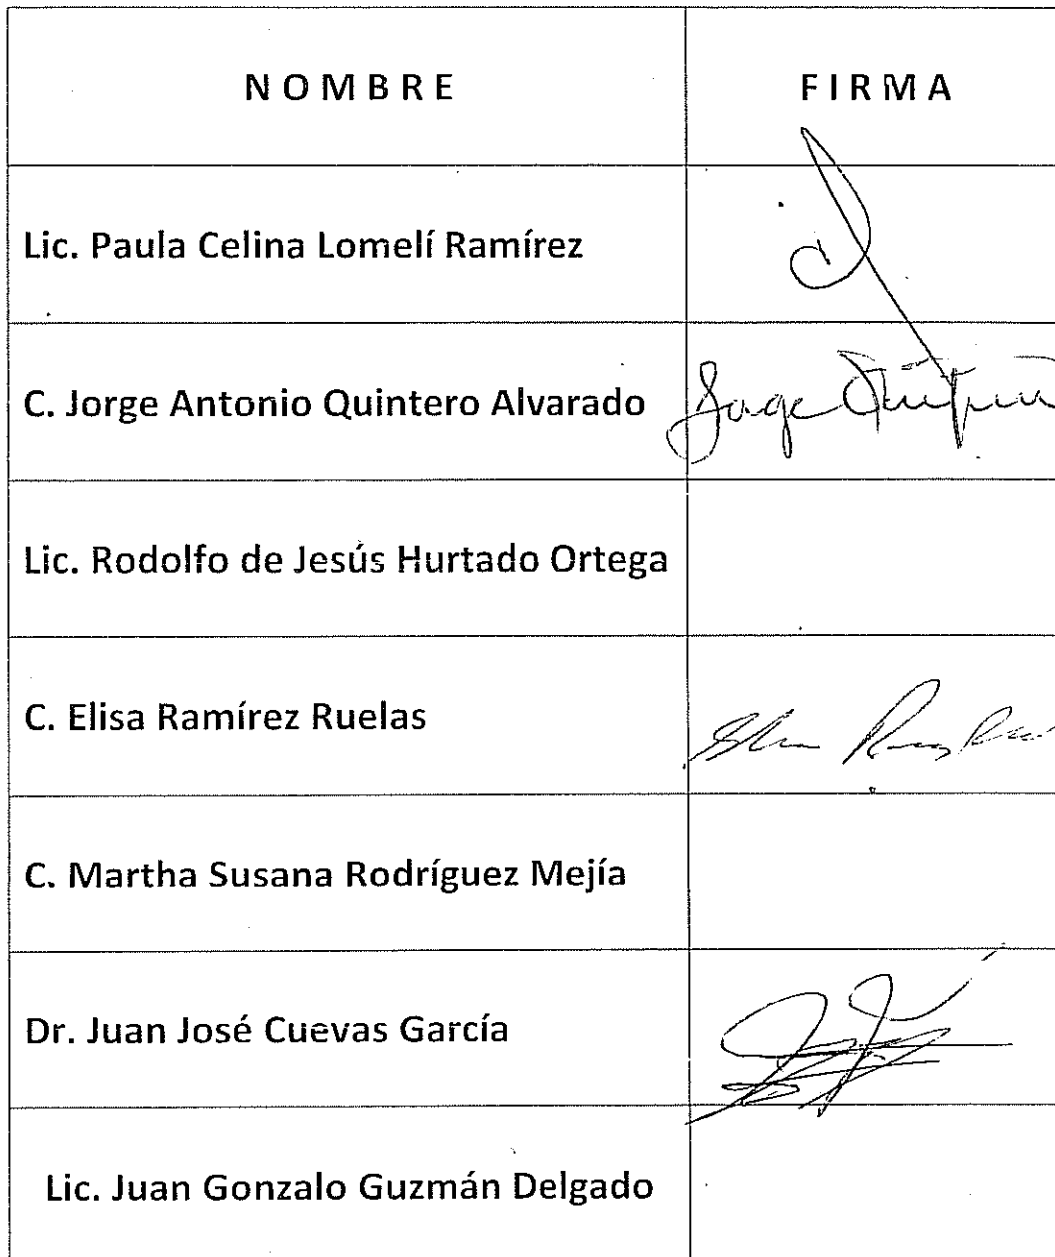 NOMBRE FIRMA
Lic. Paula Celina Lomelí Ramírez
C. Jorge Antonio Quintero Alvarado Jorge
Lic. Rodolfo de Jesús Hurtado Ortega
C. Elisa Ramírez Ruelas
C. Martha Susana Rodríguez Mejía
Dr. Juan José Cuevas García
Lic. Juan Gonzalo Guzmán Delgado